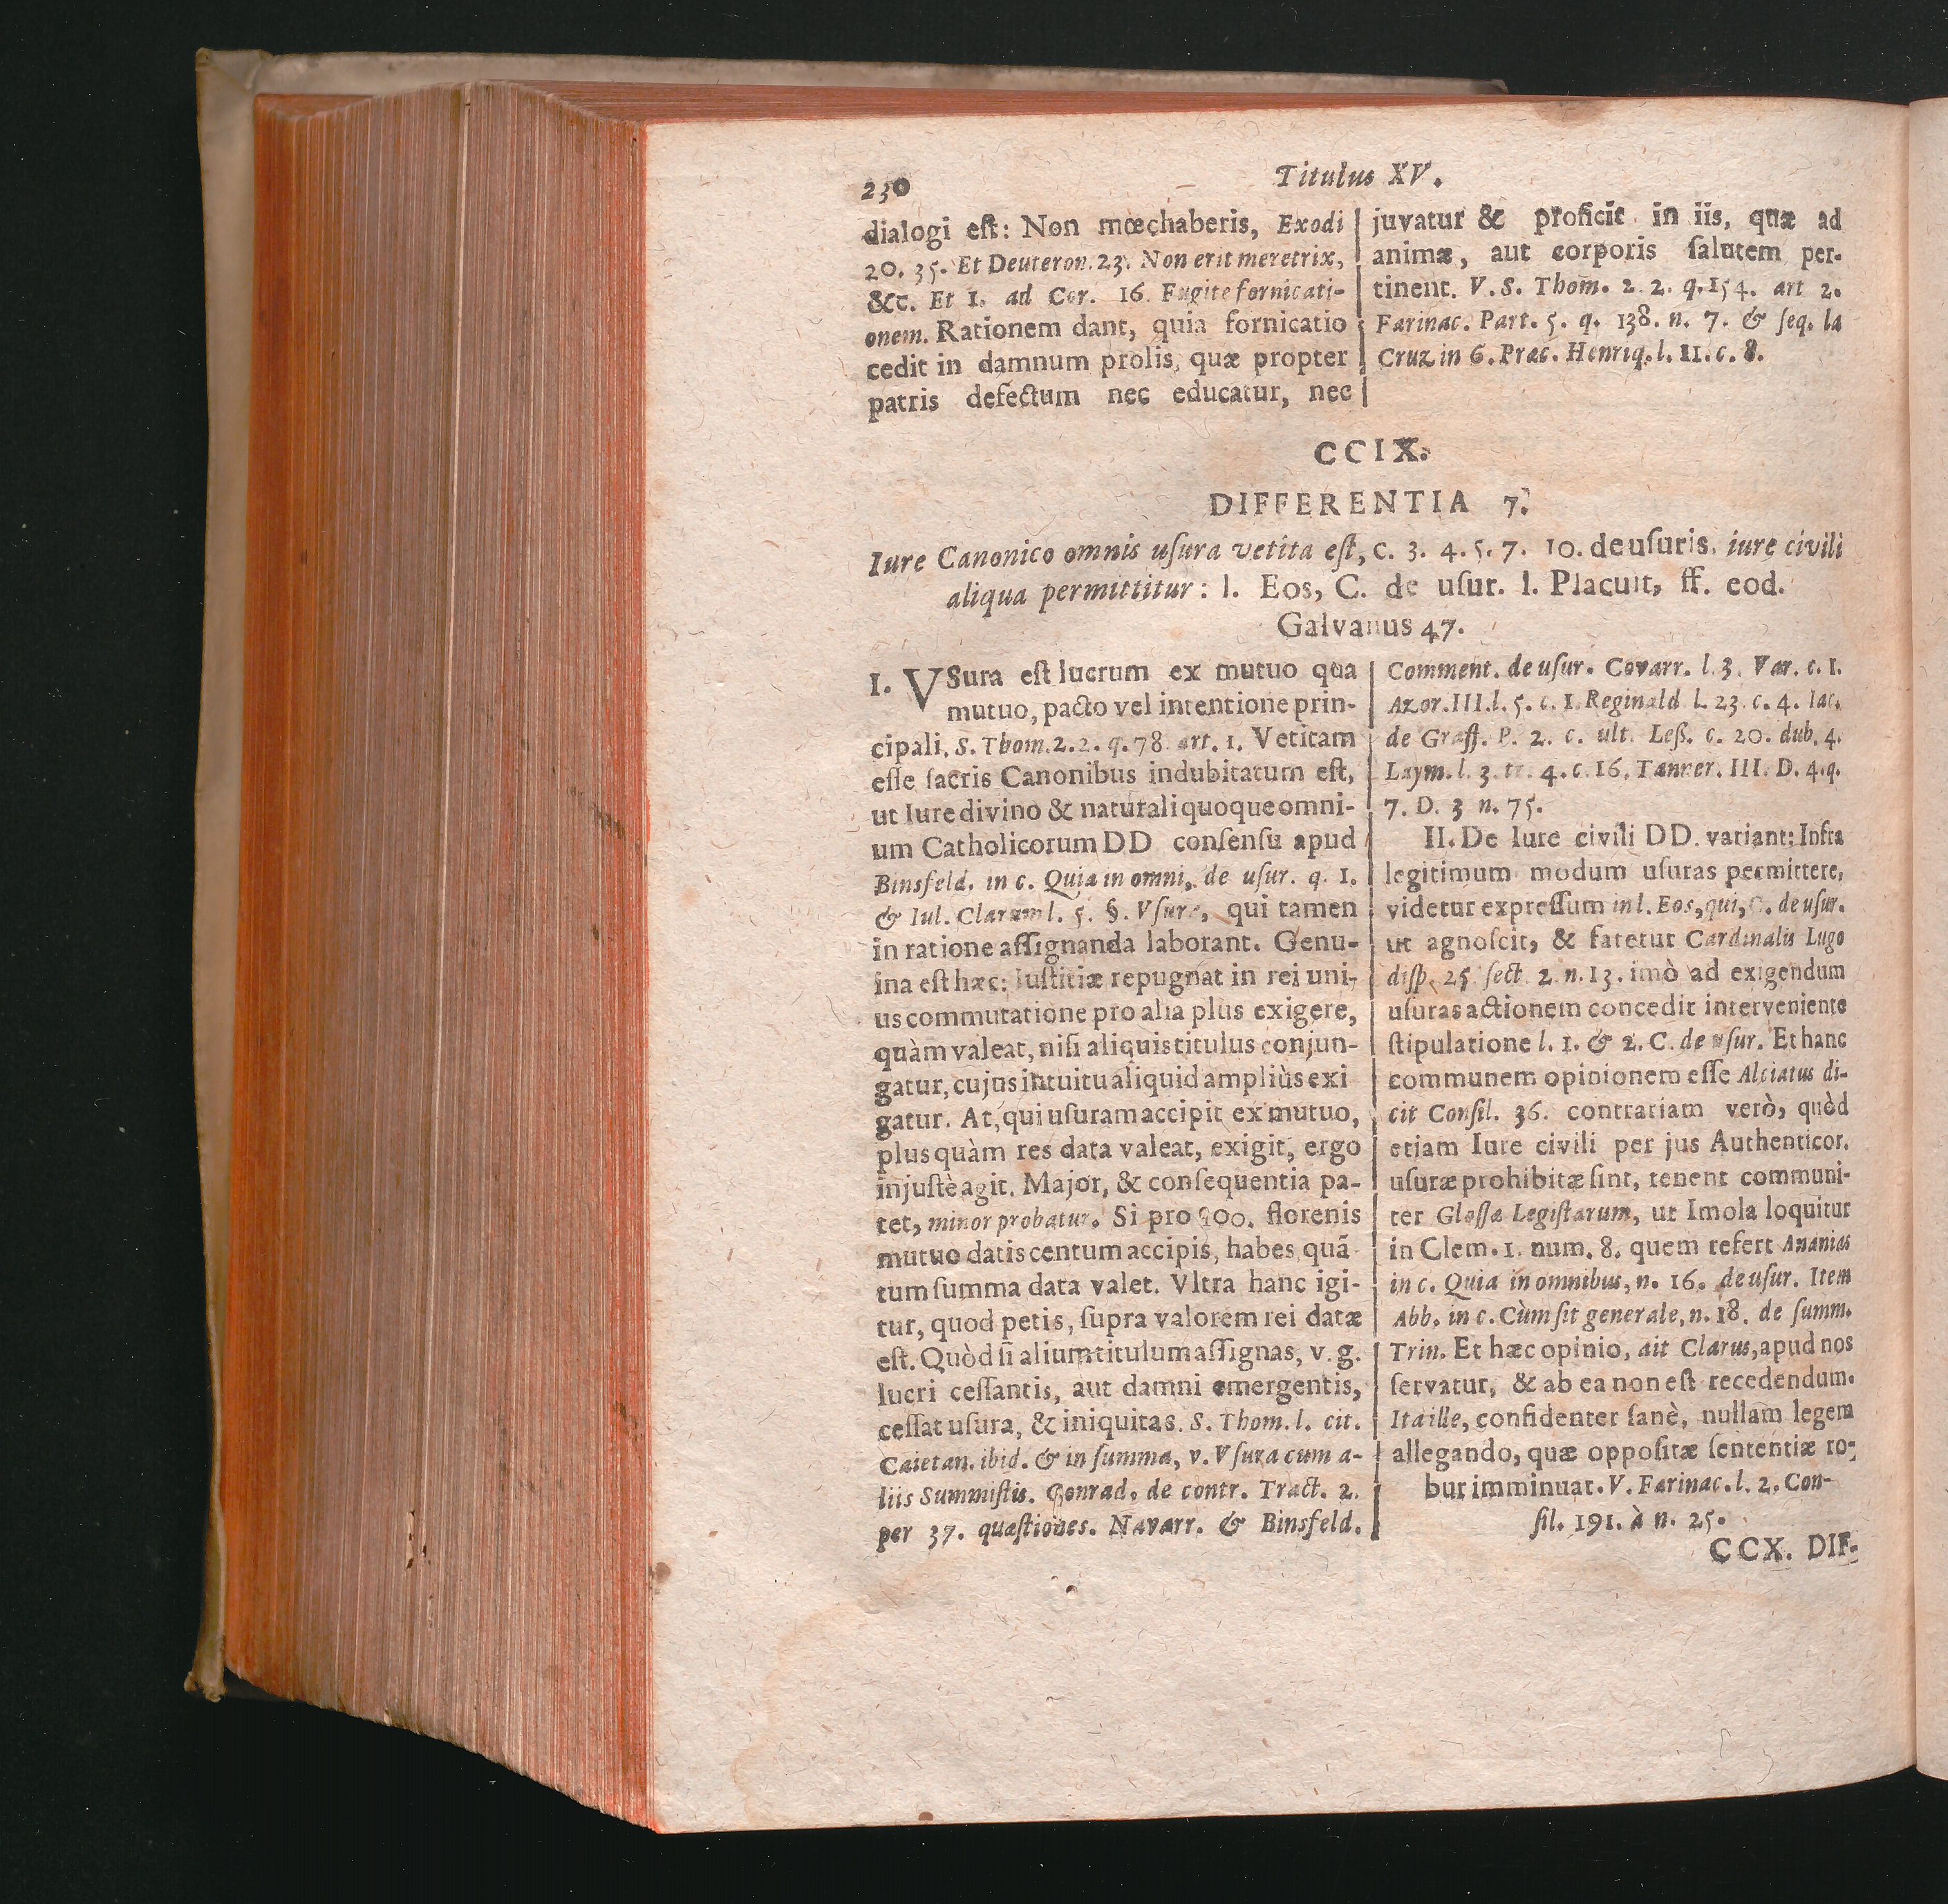 230
Titulus XV.
dialogi eſt: Non mœchaberis, Exodi
20. 35. Et Deuteron. 23. Non erit meretrix,
&c. Et 1. ad Cor. 16. Fugite fornicati-
onem. Rationem dant, quia fornicatio
cedit in damnum prolis, quæ propter
patris defectum nec educatur, nec
juvatur & proficit in iis, quæ ad
animæ, aut corporis ſalutem per-
tinent. V. S. Thom. 2. 2. q. 154. art 2.
Farinac. Part. 5. q. 138. n. 7. & ſeq. la
Cruz in 6. Præc. Henriq. l. 11. c. 8.
CCIX.
DIFFERENTIA 7.
Iure Canonico omnis uſura vetita eſt, c. 3. 4. 5. 7. 10. de uſuris. iure civili
aliqua permittitur: l. Eos, C. de uſur. l. Placuit, ff. eod.
Galvanus 47.
I. VSura eſt lucrum ex mutuo qua
mutuo, pacto vel intentione prin-
cipali. S. Thom. 2. 2. q. 78 art. 1. Vetitam
eſſe ſacris Canonibus indubitatum eſt,
ut Iure divino & naturali quoque omni-
um Catholicorum DD conſenſu apud
Binsfeld. in c. Quia in omni, de uſur. q. 1.
& Iul. Clarum l. 5. §. Vſura, qui tamen
in ratione aſſignanda laborant. Genu-
ina eſt hæc: Iuſtitiæ repugnat in rei uni-
us commutatione pro alia plus exigere,
quàm valeat, niſi aliquis titulus conjun-
gatur, cujus intuitu aliquid ampliùs exi
gatur. At, qui uſuram accipit ex mutuo,
plus quàm res data valeat, exigit, ergo
injuſtè agit. Major, & conſequentia pa-
tet, minor probatur. Si pro 900. florenis
mutuo datis centum accipis, habes quã-
tum ſumma data valet. Vltra hanc igi-
tur, quod petis, ſupra valorem rei datæ
eſt. Quòd ſi alium titulum aſſignas, v. g.
lucri ceſſantis, aut damni emergentis,
ceſſat uſura, & iniquitas. S. Thom. l. cit.
Caietan. ibid. & in ſumma, v. Vſura cum a-
liis Summiſtis. Conrad. de contr. Tract. 2.
per 37. quæſtiones. Navarr. & Binsfeld.
Comment. de uſur. Covarr. l. 3. Var. c. 1.
Azor. III. l. 5. c. 1. Reginald l. 23. c. 4. Iac.
de Graff. P. 2. c. ult. Leß. c. 20. dub. 4.
Laym. l. 3. tr. 4. c. 16. Tanner. III. D. 4. q.
7. D. 3 n. 75.
II. De Iure civili DD. variant: Infra
legitimum modum uſuras permittere,
videtur expreſſum in l. Eos, qui, C. de uſur.
ut agnoſcit, & fatetur Cardinalis Lugo
diſp. 25 ſect. 2. n. 13. imò ad exigendum
uſuras actionem concedit interveniente
ſtipulatione l. 1. & 2. C. de uſur. Et hanc
communem opinionem eſſe Alciatus di-
cit Conſil. 36. contrariam verò, quòd
etiam Iure civili per jus Authenticor.
uſuræ prohibitæ ſint, tenent communi-
ter Gloſſæ Legiſtarum, ut Imola loquitur
in Clem. 1. num. 8. quem refert Ananias
in c. Quia in omnibus, n. 16. de uſur. Item
Abb. in c. Cùm ſit generale, n. 18. de ſumm.
Trin. Et hæc opinio, ait Clarus, apud nos
ſervatur, & ab ea non eſt recedendum.
Ita ille, confidenter ſanè, nullam legem
allegando, quæ oppoſitæ ſententiæ ro-
bur imminuat. V. Farinac. l. 2. Con-
ſil. 191. à n. 25.
CCX. DIF-